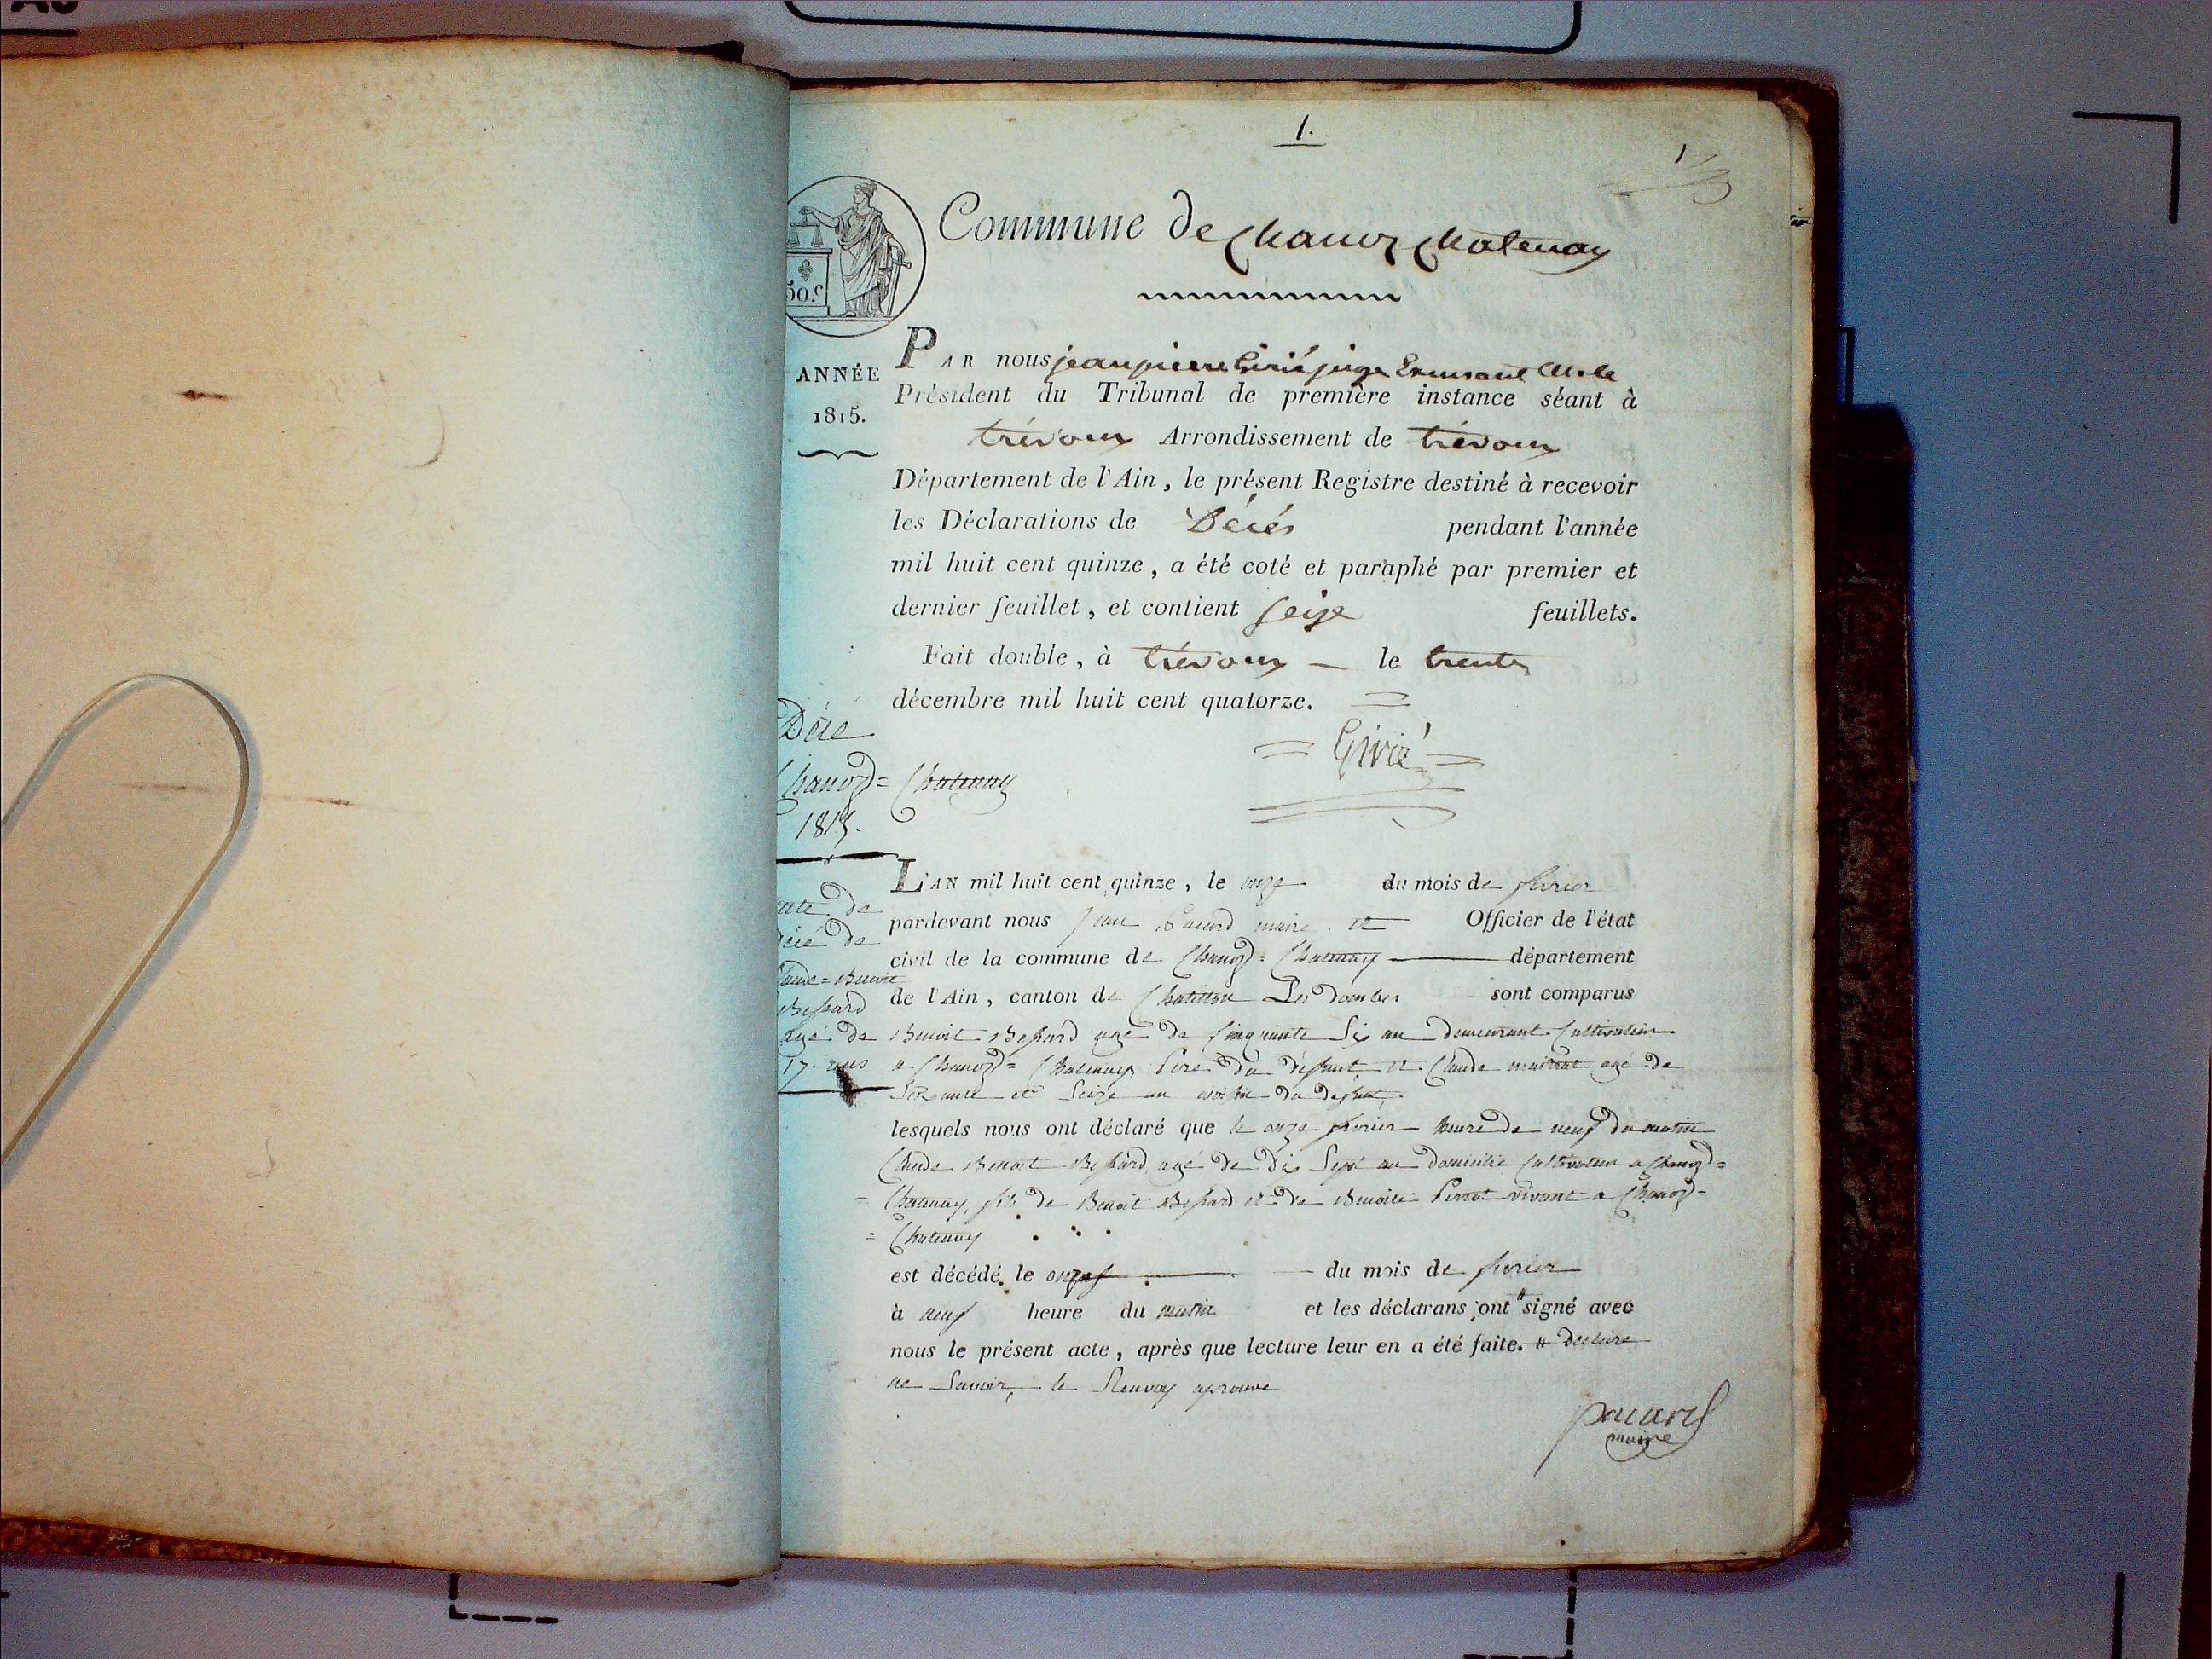 1.
1
Commune de Chanoz Chatenay
50.c
ANNÉE
1815.
PAR nous jean pierre Girié juge Exercant
Président du Tribunal de première instance séant à
trévoux Arrondissement de trévoux
Département de l'Ain, le présent Registre destiné à recevoir
les Déclarations de Décés pendant l'année
mil huit cent quinze, a été coté et paraphé par premier et
dernier feuillet, et contient seize feuillets.
Fait double, à trévoux — le trente
décembre mil huit cent quatorze.
= Girié =
Décé
Chanoz = Chatenay
1815.
L'AN mil huit cent quinze, le onze du mois de fevrier
pardevant nous maire et Officier de l'état
civil de la commune de Chanoz = Chatenay département
de l'Ain, canton de Chatillon Les Dombes sont comparus
Benoit Bessard agé de cinquante six an demeurant Cultivateur
a Chanoz = Chatenay Pere du defunt et Claude agé de
Soixante et Seize an voisin du defunt,
lesquels nous ont déclaré que le onze fevrier heure de neuf du matin
Claude Benoit Bessard agé de dix Sept an domicilié Cultivateur a Chanoz =
= Chatenay, fils de Benoit Bessard et de Benoite Perrot vivant a Chanoz =
= Chatenay
est décédé le onze du mois de fevrier
à neuf heure du matin et les déclarans ont # signé avec
nous le présent acte, après que lecture leur en a été faite. # declare
ne Savoir, le Renvoy aprouve
pacard
maire
acte de
décé de
Claude = Benoit
Bessard
agé de
17. ans